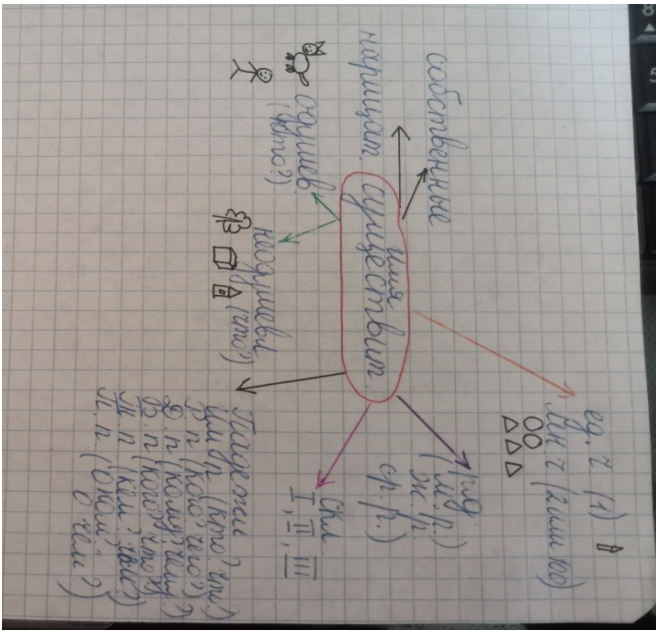 имя
существит.
собственные
нарицат.
одушев.
(кто?)
неодушевл
(что?)
ед. ч (1)
мн ч (2 или >)
род
(м. р.)
ж. р
ср. р.)
скл.
I, II, III
Падежи
Им. п (кто? что?)
Р. п (кого? чего?)
Д. п (кому? чему?)
В. п (кого? что?)
Т. п (кем? чем?)
П. п (о ком?
о чем?)